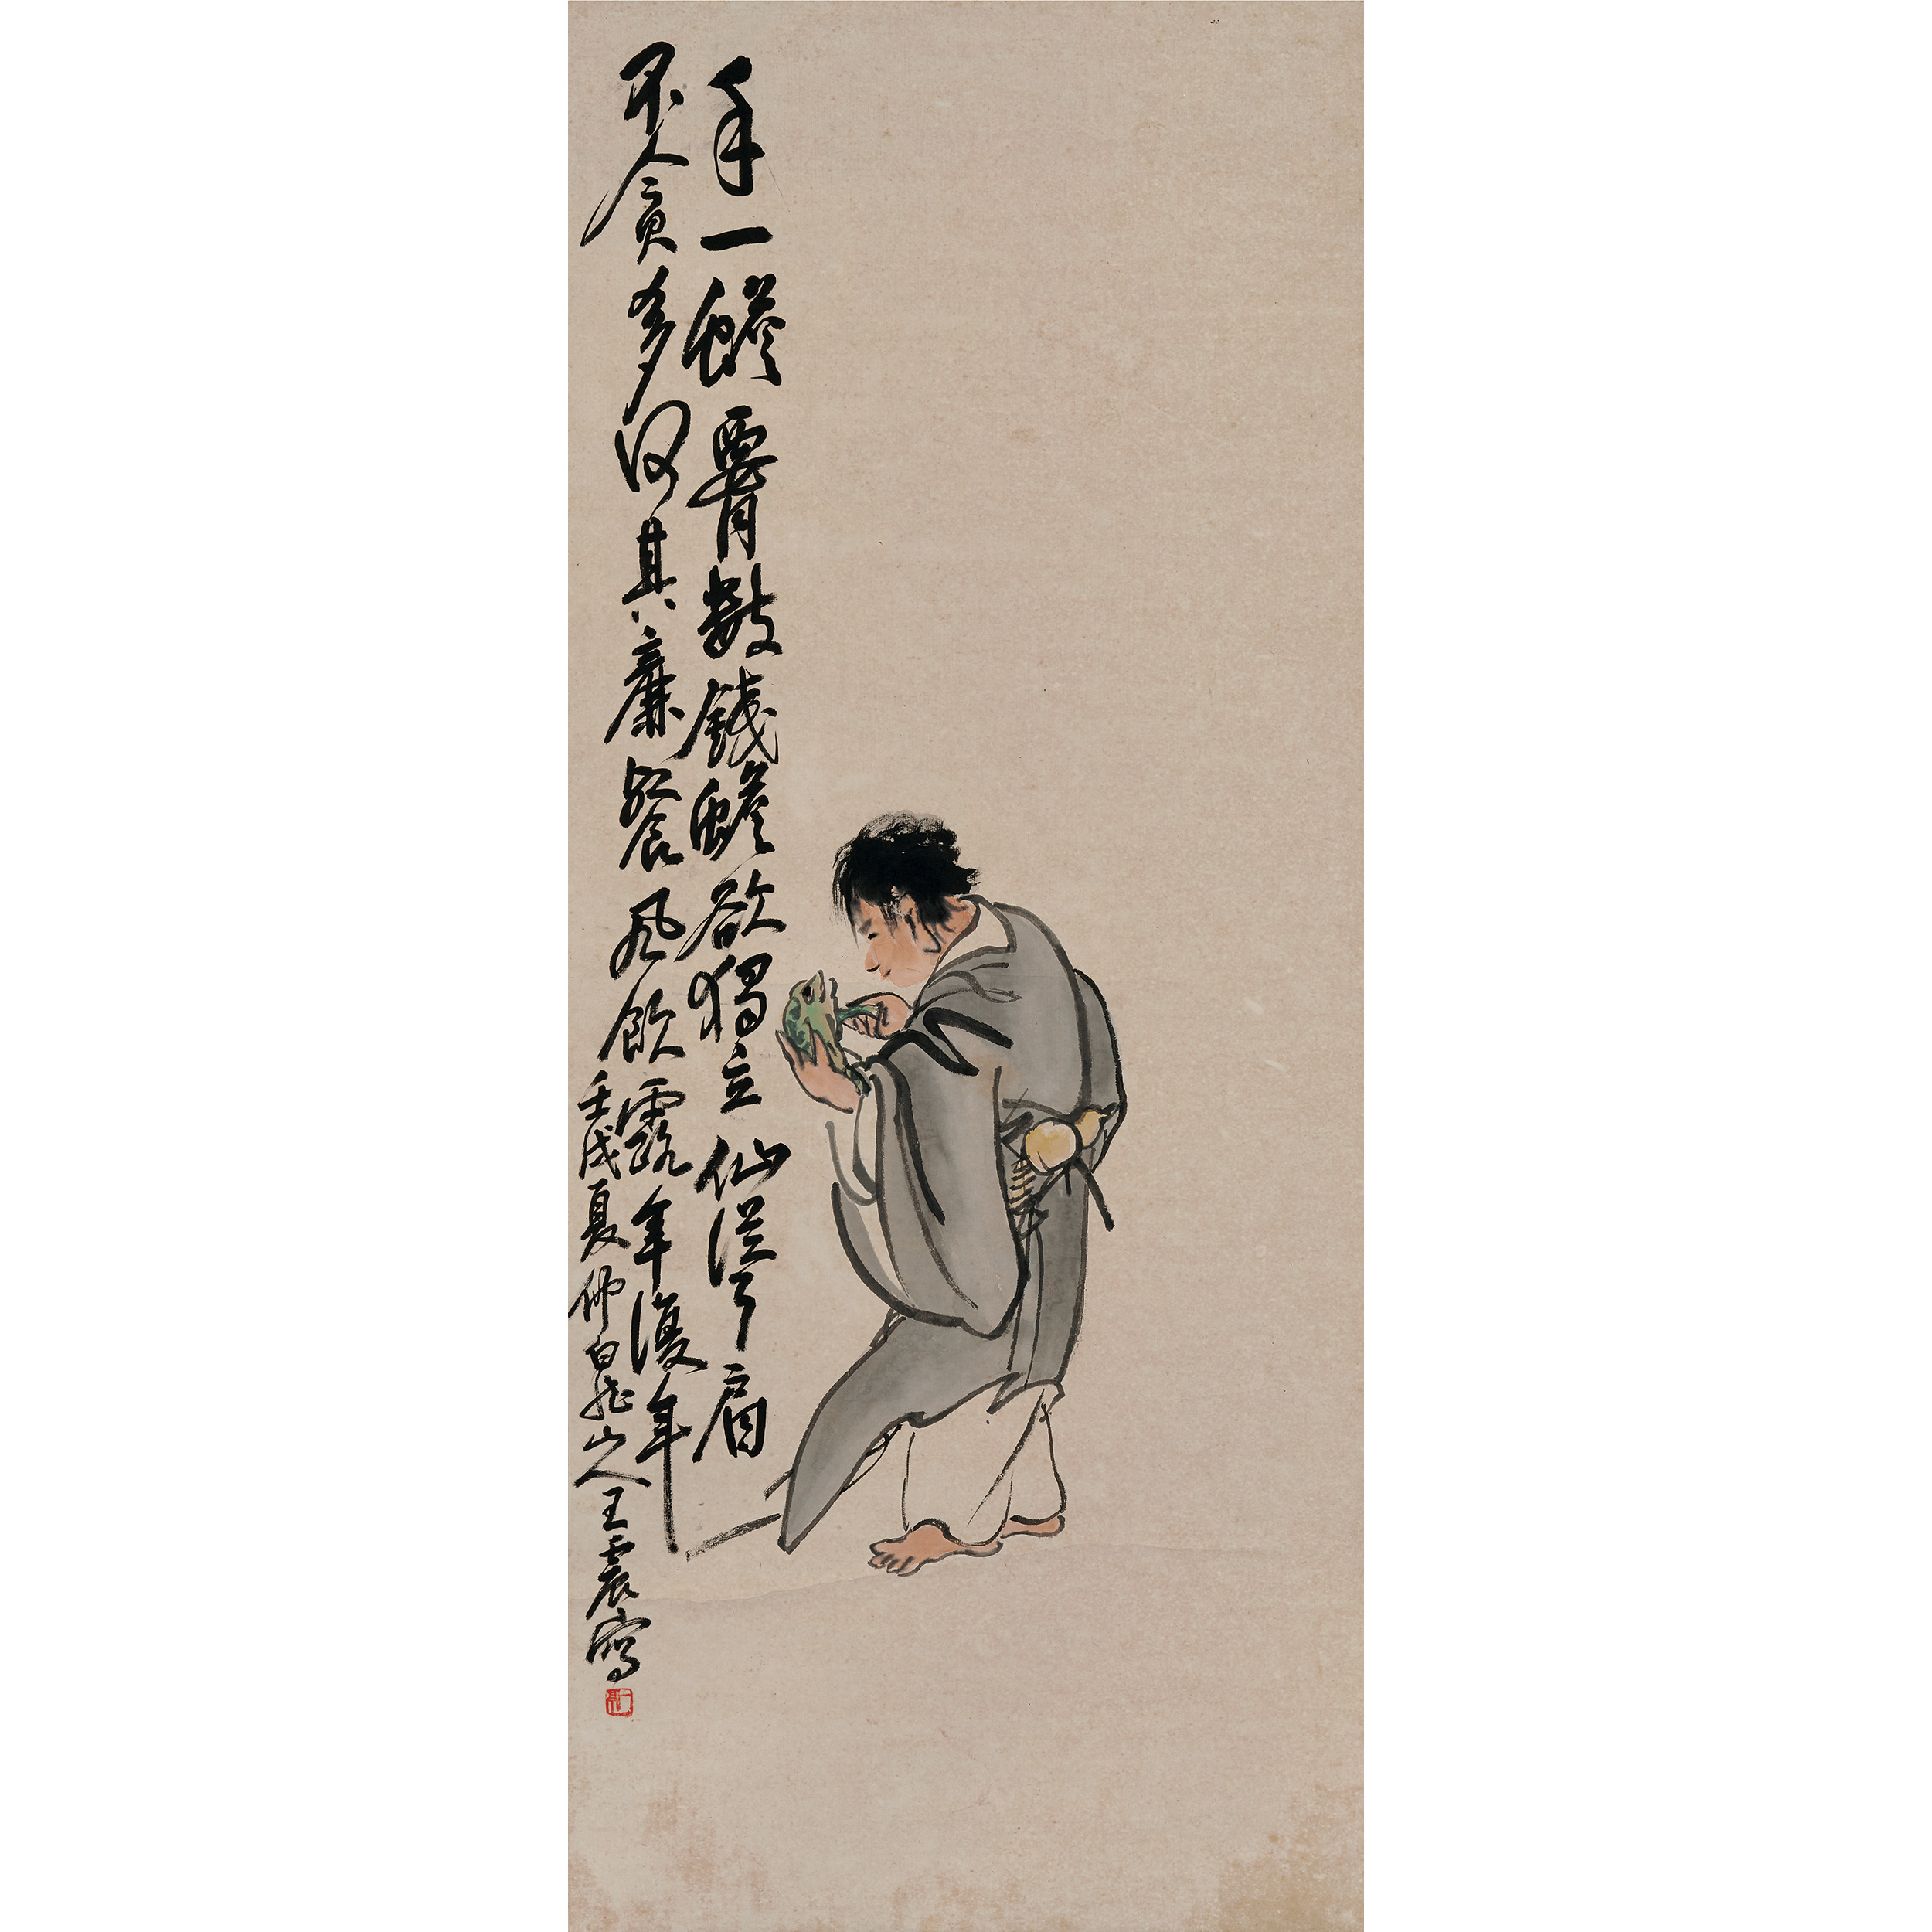 手一蟾腰數錢蟾欲獨立仙聳肩
不貪多何其廉餐風飲露年復年
壬戌夏仲白龍山人王震寫
一亭